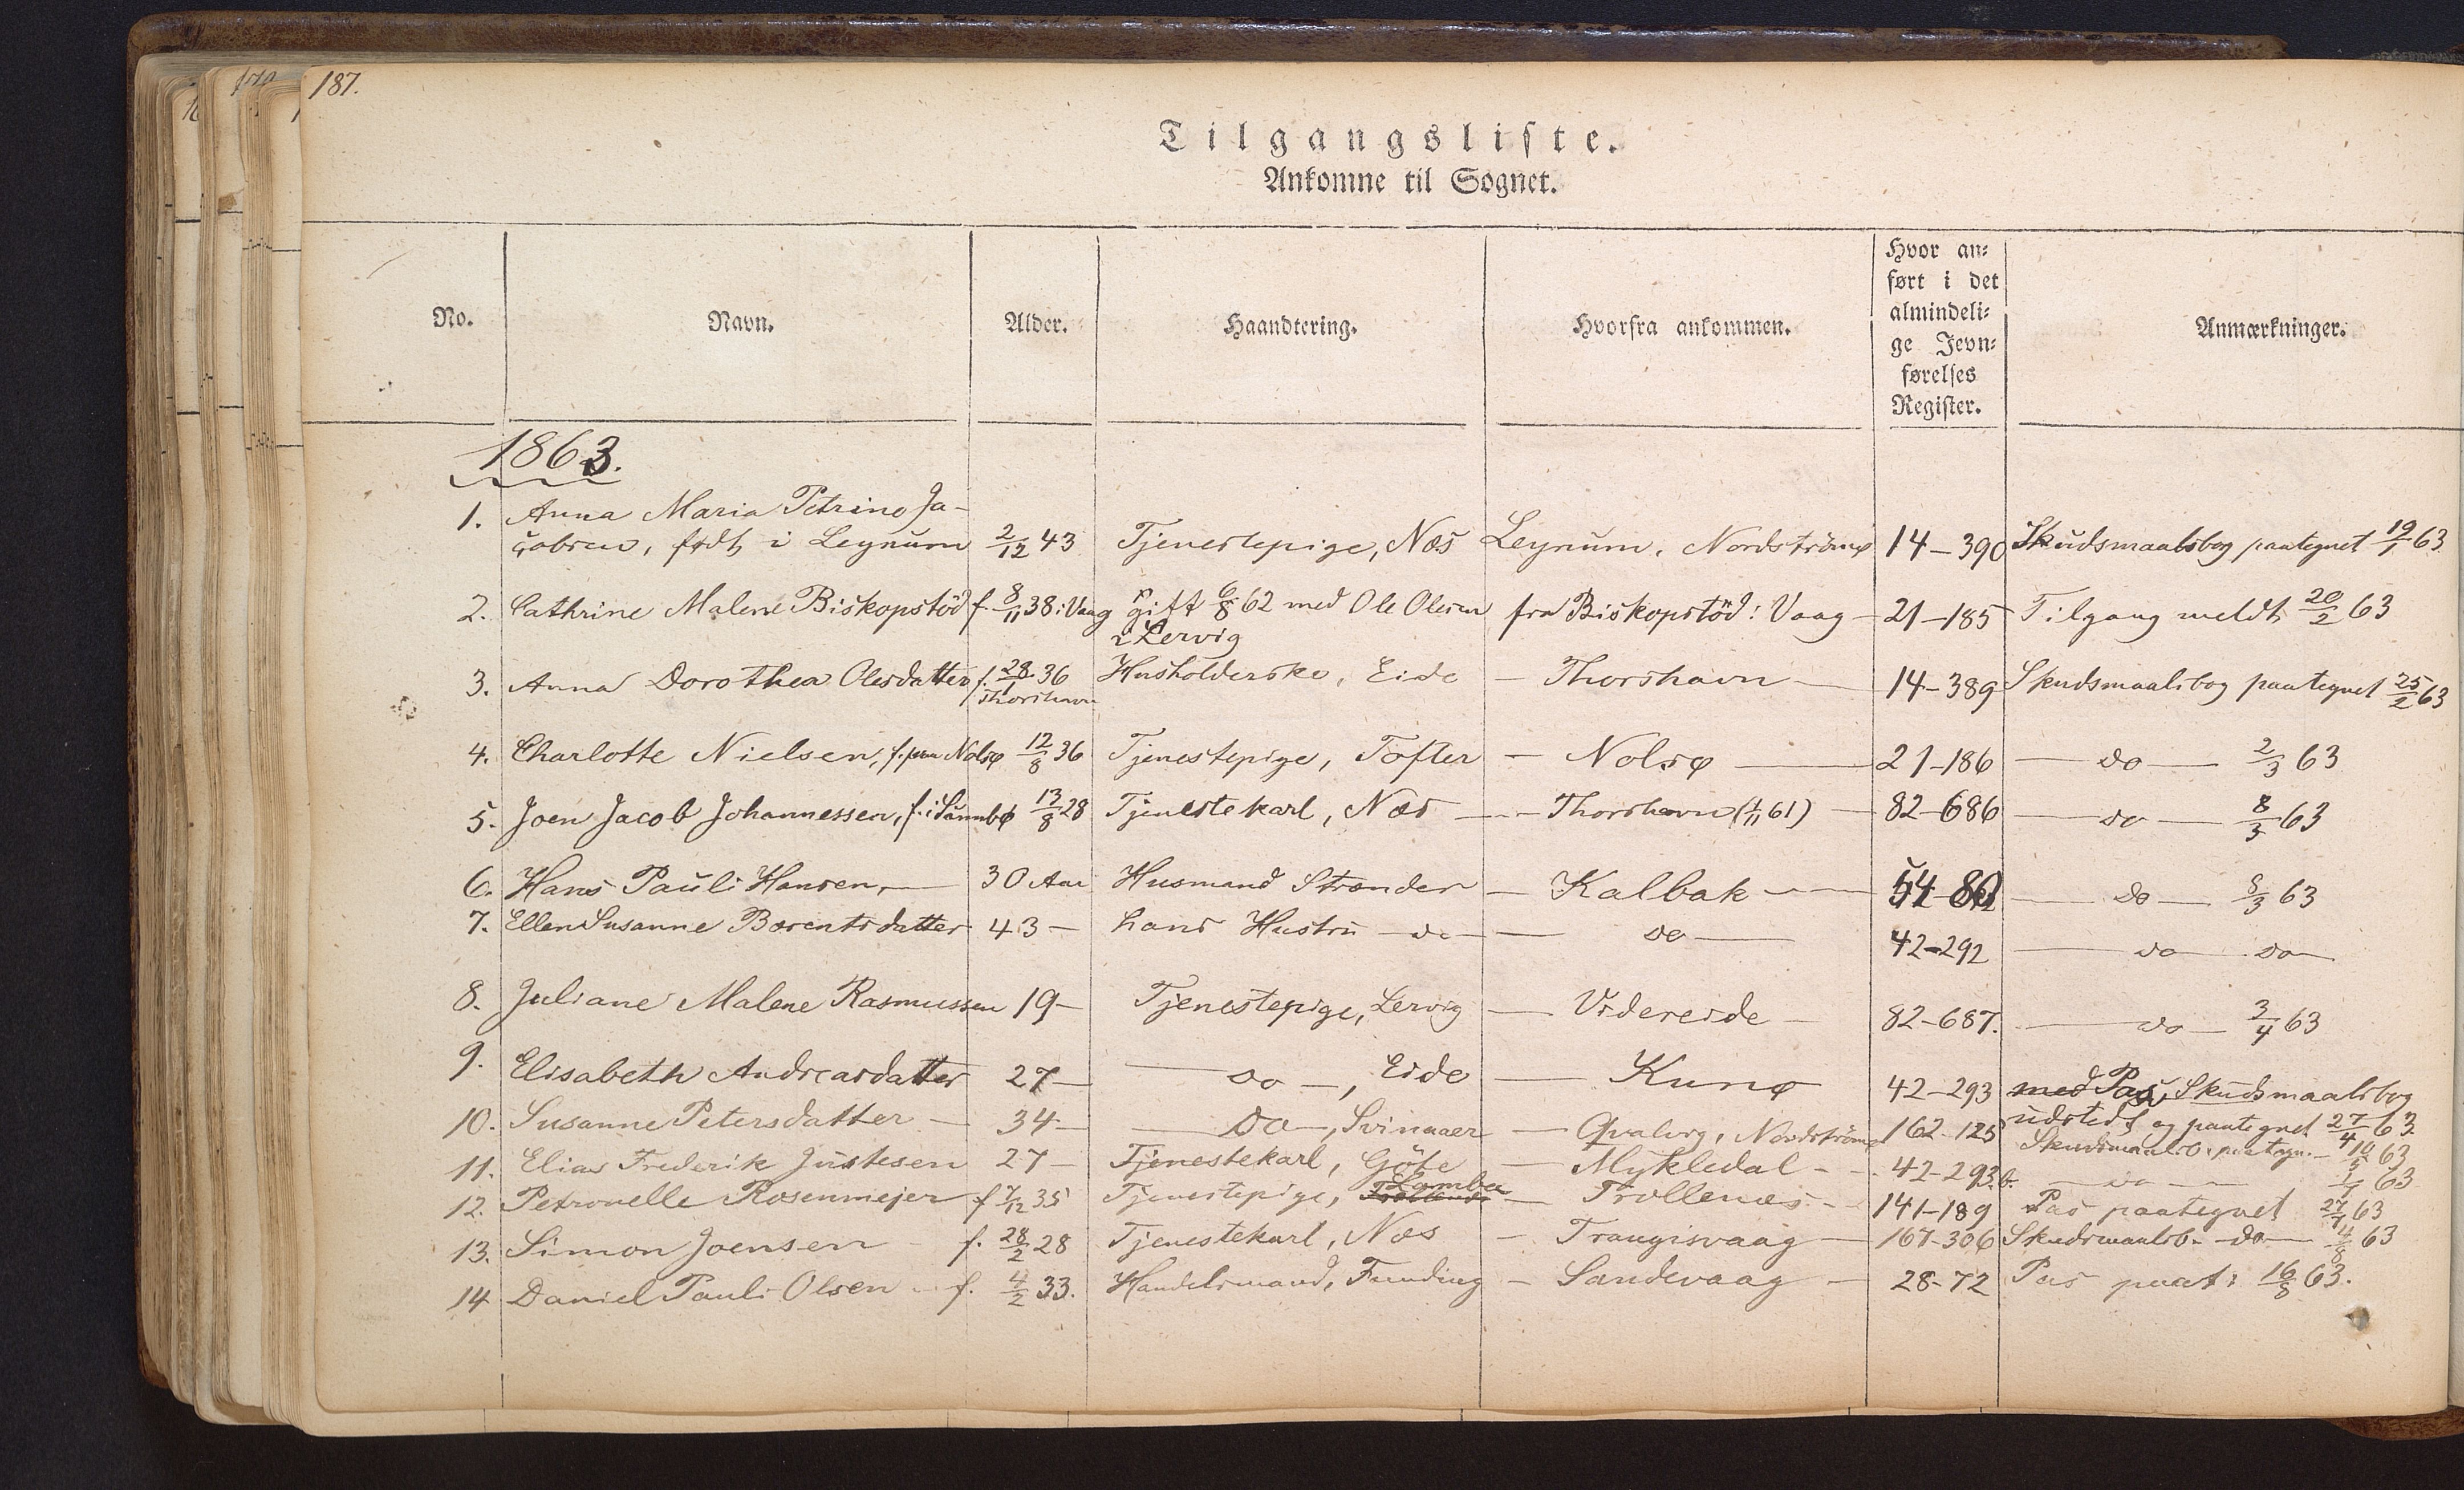 187.
Tilgangsliste.
Ankomne til Sognet.
No. Navn. Alder. Haandtering. Hvorfra ankommen. Hvor an=
ført i det
almindeli=
ge Jevn=
førelses
Register. Anmærkninger.
1863.
1. Anna Maria Petrine Ja-
cobsen, født i Leynum 2/12 43 Tjenestepige, Næs Leynum, Nordstrømø 14-390 Skudsmaalsbog paategnet 19/1 63
2. Cathrine Malene Biskopstöd f. 8/11 38 i Vaag gift 6/8 62 med Ole Olesen fra Biskopstöd i Vaag - 21-185 Tilgang meldt 20/2 63
i Lervig
3. Anna Dorothea Olesdatter f. 28/1 36 Husholderske, Eide - Thorshavn - 14-389 Skudsmaalsbog paategnet 25/2 63
Thorshavn
4. Charlotte Nielsen, f. paa Nolsø 12/8 36 Tjenestepige, Tofter - Nolsø - 21-186 - do - 2/3 63
5. Joen Jacob Johannessen, f. i Sumbø 13/8 28 Tjenestekarl, Næs - Thorshavn (1/11 61) - 82-686 - do - 8/3 63
6. Hans Pauli Hansen, - 30 Aar Husmand Strænder - Kalbak - 54-80 - do - 8/3 63
7. Ellen Susanne Barentsdatter 43 - hans Hustru - do - - do - 42-292 - do - do -
8. Juliane Malene Rasmussen 19 - Tjenestepige, Lervig - Videreide - 82-687. - do - 3/4 63
9. Elisabeth Andreasdatter 27 - - do -, Eide - Kunø 42-293 med Pas, Skudsmaalsbog
udstedt og paategnet 27/4 63.
10. Susanne Petersdatter - 34 - - do -, Svinaaer - Qvalvig, Nordströmø 162-125 Skudsmaalsb. paategn. - 10/5 63
11. Elias Frederik Justesen 27 - Tjenestekarl, Göte - Mykledal - - 42-293.b. - do - 1/7 63
12. Petronelle Rosenmejer f 7/12 35 Tjenestepige, Lamba - Trollenæs - - 141-189 Pas paategnet 27/7 63
13. Simon Joensen f. 28/2 28 Tjenestekarl, Næs - Trangisvaag - 167-306 Skudsmaalsb. - do - 4/8 63
14 Daniel Pauli Olsen - f. 4/2 33. Handelsmand, Funding - Sandevaag - 28-72 Pas paat: 16/8 63.